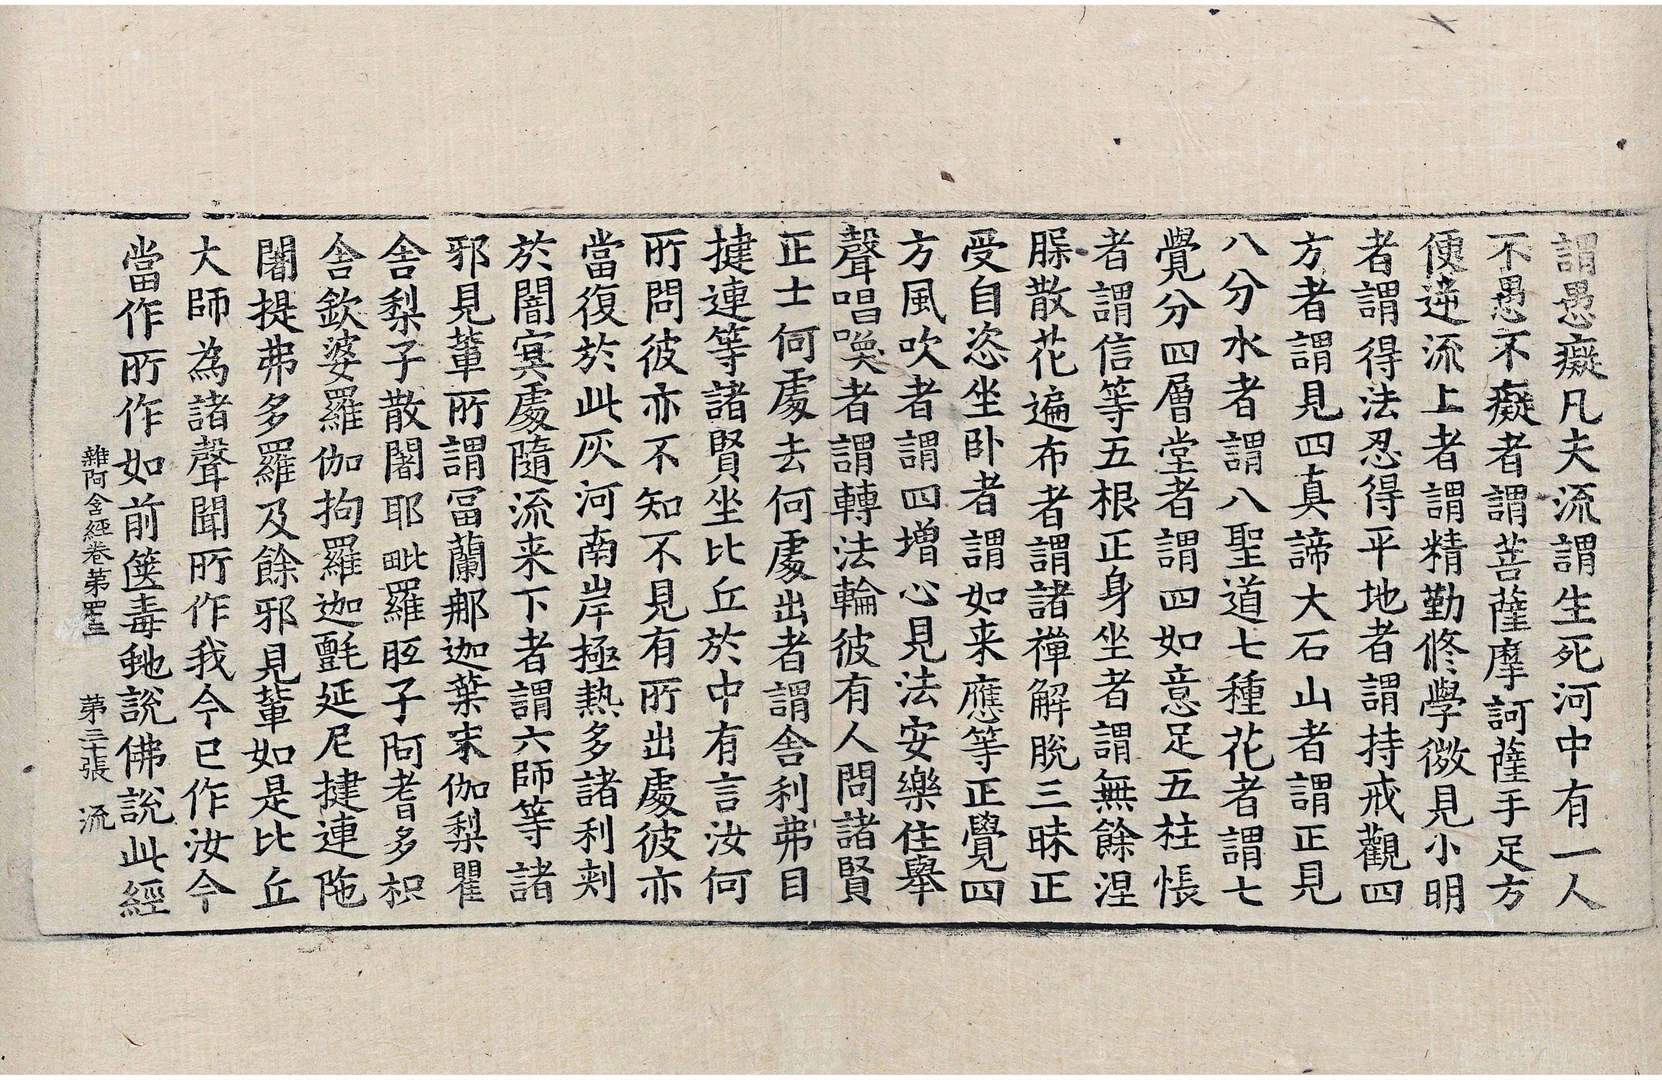 謂愚癡凡夫流謂生死河中有一人
不愚不癡者謂菩薩摩訶薩手足方
便逆流上者謂精勤修學微見小明
者謂得法忍得平地者謂持戒觀四
方者謂見四真諦大石山者謂正見
八分水者謂八聖道七種花者謂七
覺分四層堂者謂四如意足五柱悵
者謂信等五根正身坐者謂無餘涅
腂散花遍布者謂諸禪解脫三昧正
受自恣坐卧者謂如来應等正覺四
方風吹者謂四增心見法安樂住舉
聲唱喚者謂轉法輪彼有人問諸賢
正士何處去何處出者謂舍利弗目
揵連等諸賢坐比丘於中有言汝何
所問彼亦不知不見有所出處彼亦
當復於此灰河南岸極熱多諸利刾
於闇㝠處隨流来下者謂六師等諸
邪見輩所謂冨蘭那迦葉末伽梨瞿
舍梨子散闍耶毗羅胝子阿耆多枳
舍欽婆羅伽拘羅迦氈延尼揵連陁
闍提弗多羅及餘邪見輩如是比丘
大師為諸聲聞所作我今已作汝今
當作所作如前篋毒虵說佛說此經
雜阿含經卷第四十三 第三十張 流